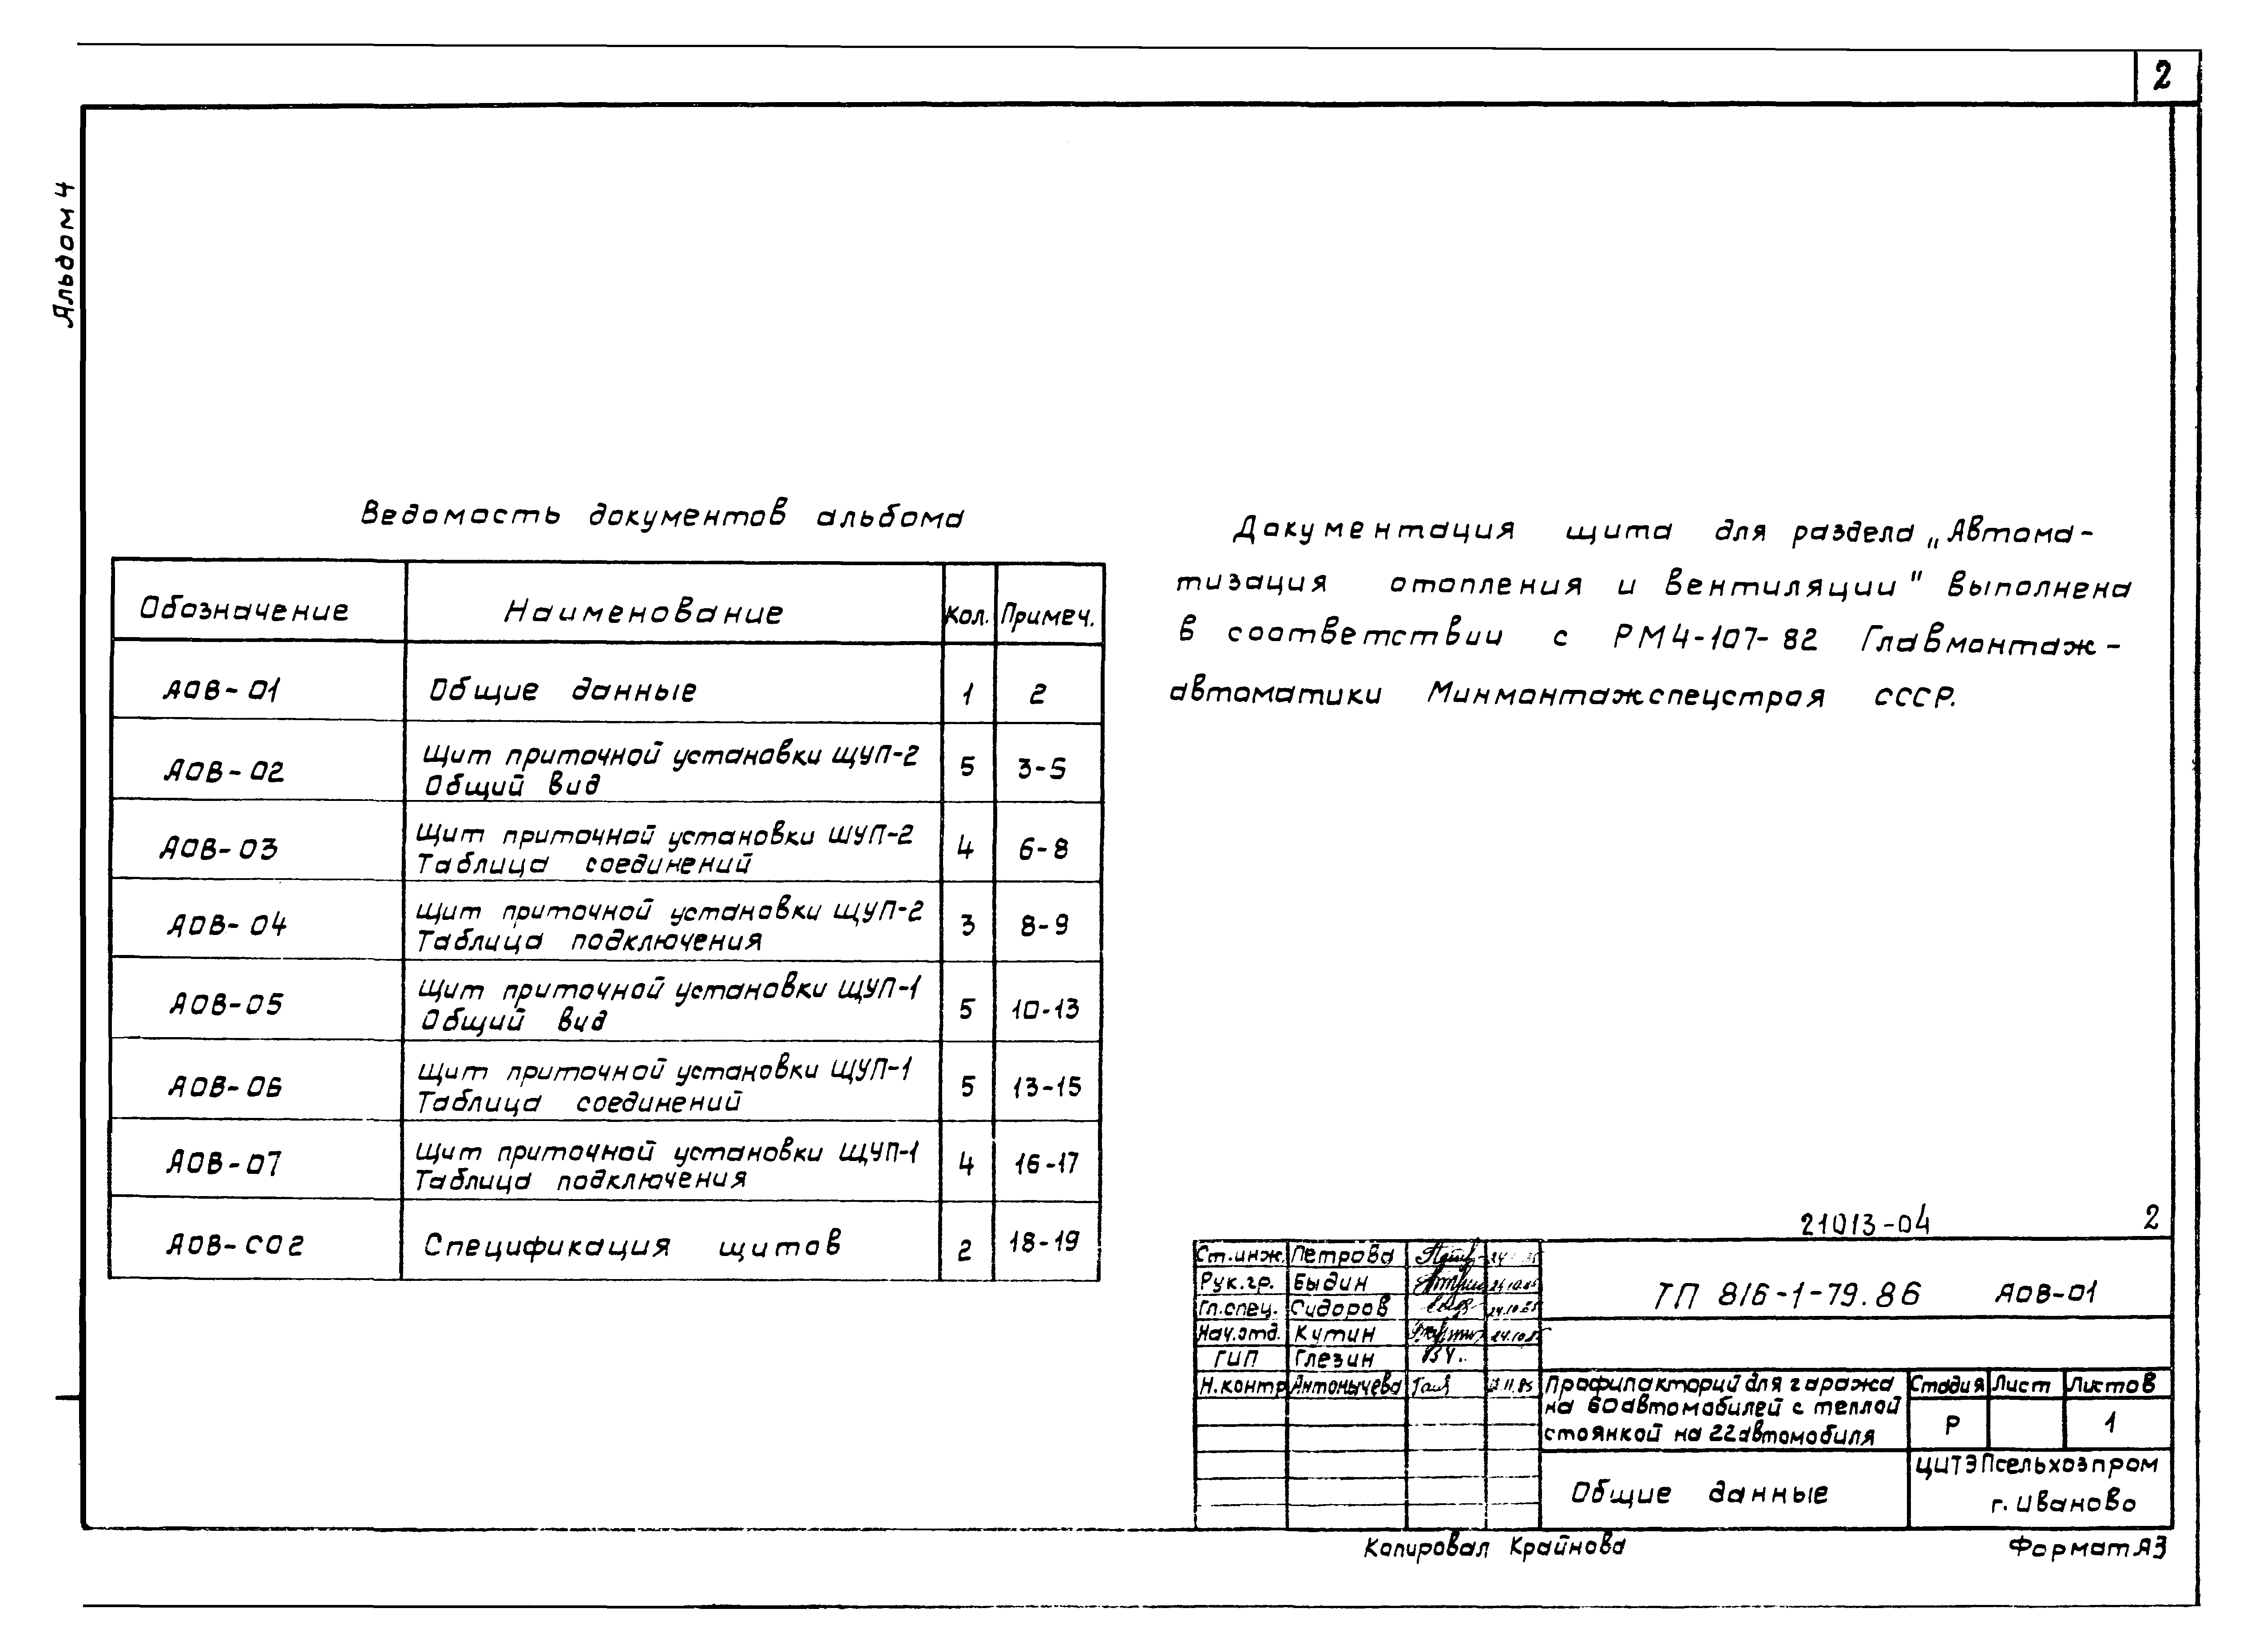 2
Альбом 4
Ведомость документов альбома
Обозначение Наименование Кол. Примеч.
АОВ-01 Общие данные 1 2
АОВ-02 Щит приточной установки ЩУП-2
Общий вид 5 3-5
АОВ-03 Щит приточной установки ШУП-2
Таблица соединений 4 6-8
АОВ-04 Щит приточной установки ЩУП-2
Таблица подключения 3 8-9
АОВ-05 Щит приточной установки ЩУП-1
Общий вид 5 10-13
АОВ-06 Щит приточной установки ЩУП-1
Таблица соединений 5 13-15
АОВ-07 Щит приточной установки ЩУП-1
Таблица подключения 4 16-17
АОВ-СО2 Спецификация щитов 2 18-19
Документация щита для раздела „Автома-
тизация отопления и вентиляции" выполнена
в соответствии с РМ4-107-82 Главмонтаж-
автоматики Минмонтажспецстроя СССР.
21013-04 2
Ст.инж. Петрова
Рук.гр. Быдин 24.10.85
Гл.спец. Сидоров 24.10.85
Нач.отд. Кутин 24.10.85
ГИП Глезин
Н.контр Антонычева 11.85
ТП 816-1-79.86 АОВ-01
Профилакторий для гаража
на 60 автомобилей с теплой
стоянкой на 22 автомобиля
Стадия Лист Листов
Р 1
Общие данные
ЦИТЭПсельхозпром
г. Иваново
Копировал Крайнова
Формат А3